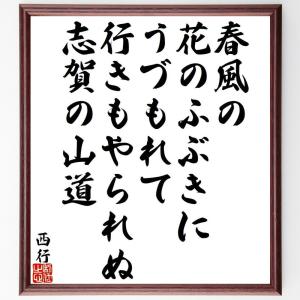 春風の
花のふぶきに
うづもれて
行きもやられぬ
志賀の山道
西行